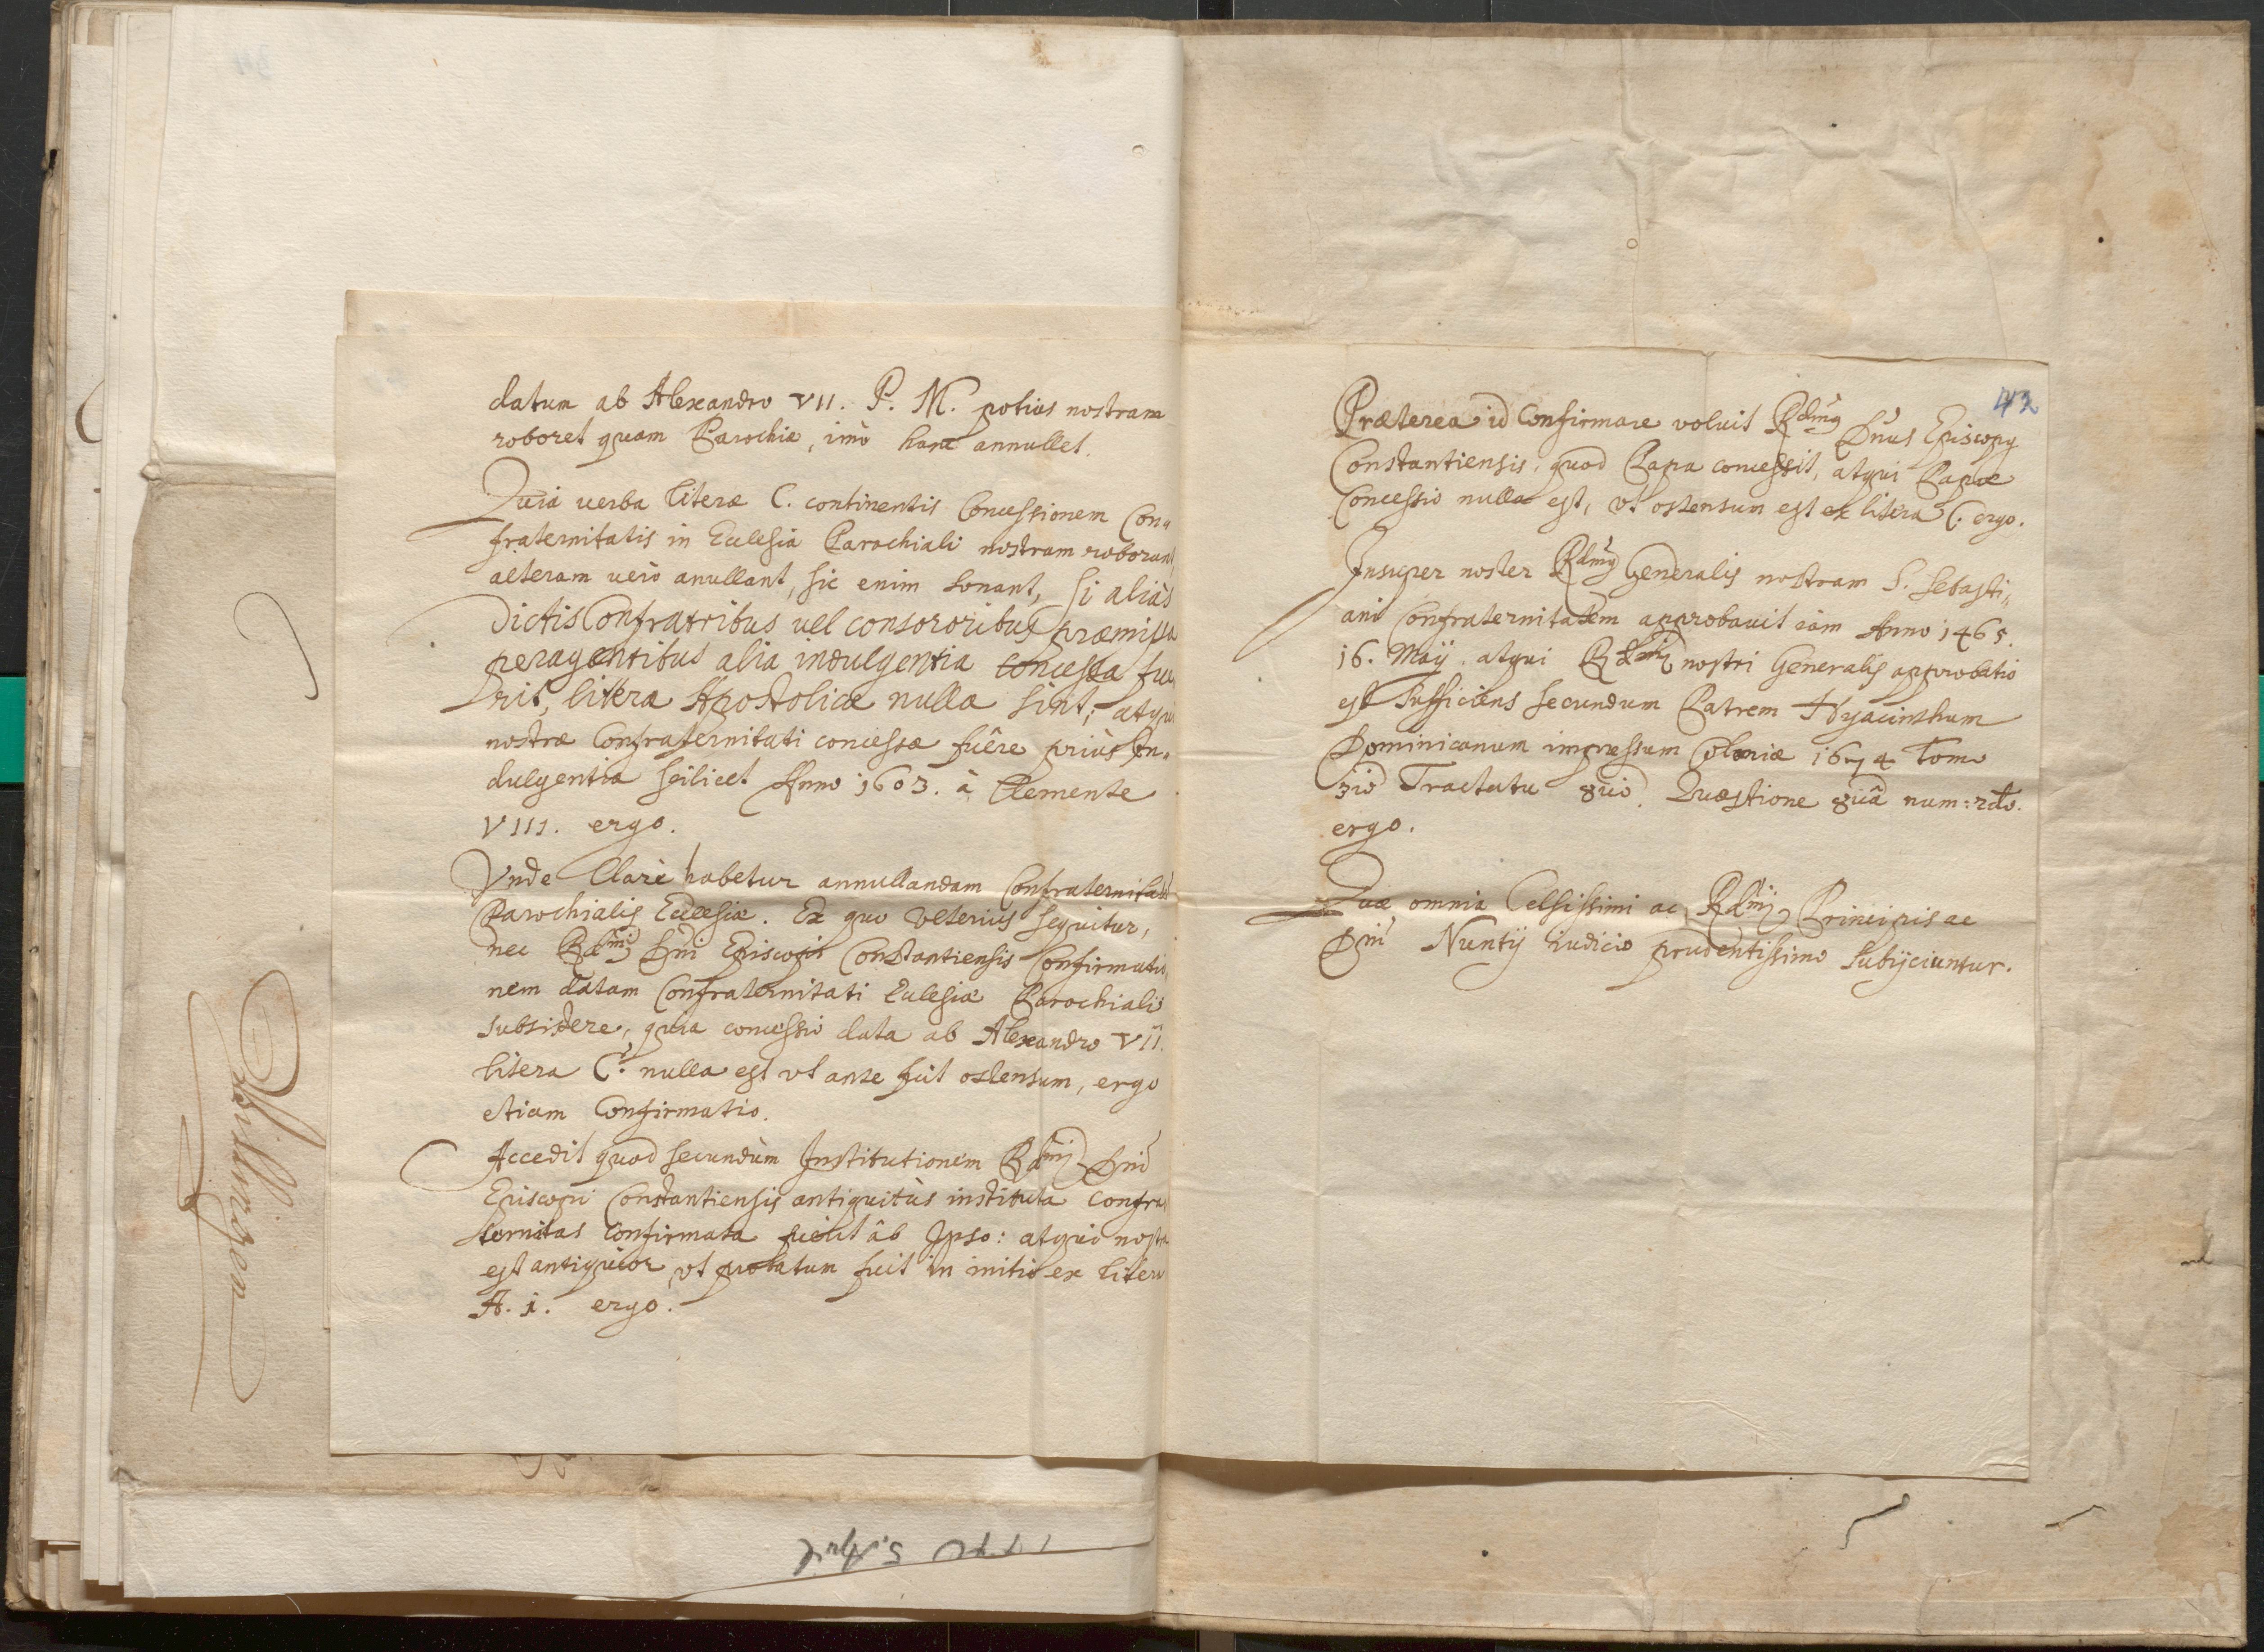 datum ab Alexandro VII. P. M. potius nostram
roboret quam Parochiæ, imò hanc annullet.
Quia uerba literæ C. continentis Concessionem Con„
fraternitatis in Ecclesia Parochiali nostram roborant,
alteram uerò anullant, sic enim sonant, si aliàs
Dictis Confratribus uel consororibus præmissa
peragentibus alia indulgentia concessa fue„
rit, literæ Apostolicæ nullæ sint; atqui
nostræ Confraternitati concessæ fuêre priùs In„
dulgentiæ scilicet Anno 1603. à Clemente
VIII. ergo.
Vnde Clarè habetur annullandam Confraternitatem
Parochialis Ecclesiæ. Ex quo Vlteriùs sequitur,
nec Rdmi Dni Episcopi Constantiensis Confirmatio„
nem datam Confraternitati Eclesiæ Parochialis
subsistere, quia concessio data ab Alexandro VII.
litera C. nulla est vt ante fuit ostensum, ergo
etiam Confirmatio.
Accedit quod secundùm Institutionem Rdmi Dni
Episcopi Constantiensis antiquitùs instituta Confra
ternitas Confirmata fuerit ab Ipso: atqui nostra
est antiquior, vt probatum fuit in initio ex litera
A. 1. ergo.
42
Præterea id Confirmare voluit Rdmus Dnus Episcopus
Constantiensis, quod Papa concessit, atqui Papæ
Concessio nulla est, vt ostensum est ex litera C. ergo.
Insuper noster Rdmus Generalis nostram S. Sebasti„
ani Confraternitatem approbauit iam Anno 1465.
16. Maij. atqui Rdmi nostri Generalis approbatio
est sufficiens secundum Patrem Hyacinthum
Dominicanum impressum Coloniæ 1674 Tomo
3io Tractatu 8uo. Quæstione 8uâ num: 2do.
ergo.
Quæ omnia Celsissimi ac Rdmi Principis ac
Dni Nuntij iudicio prudentissimo subijciuntur.
Villingen